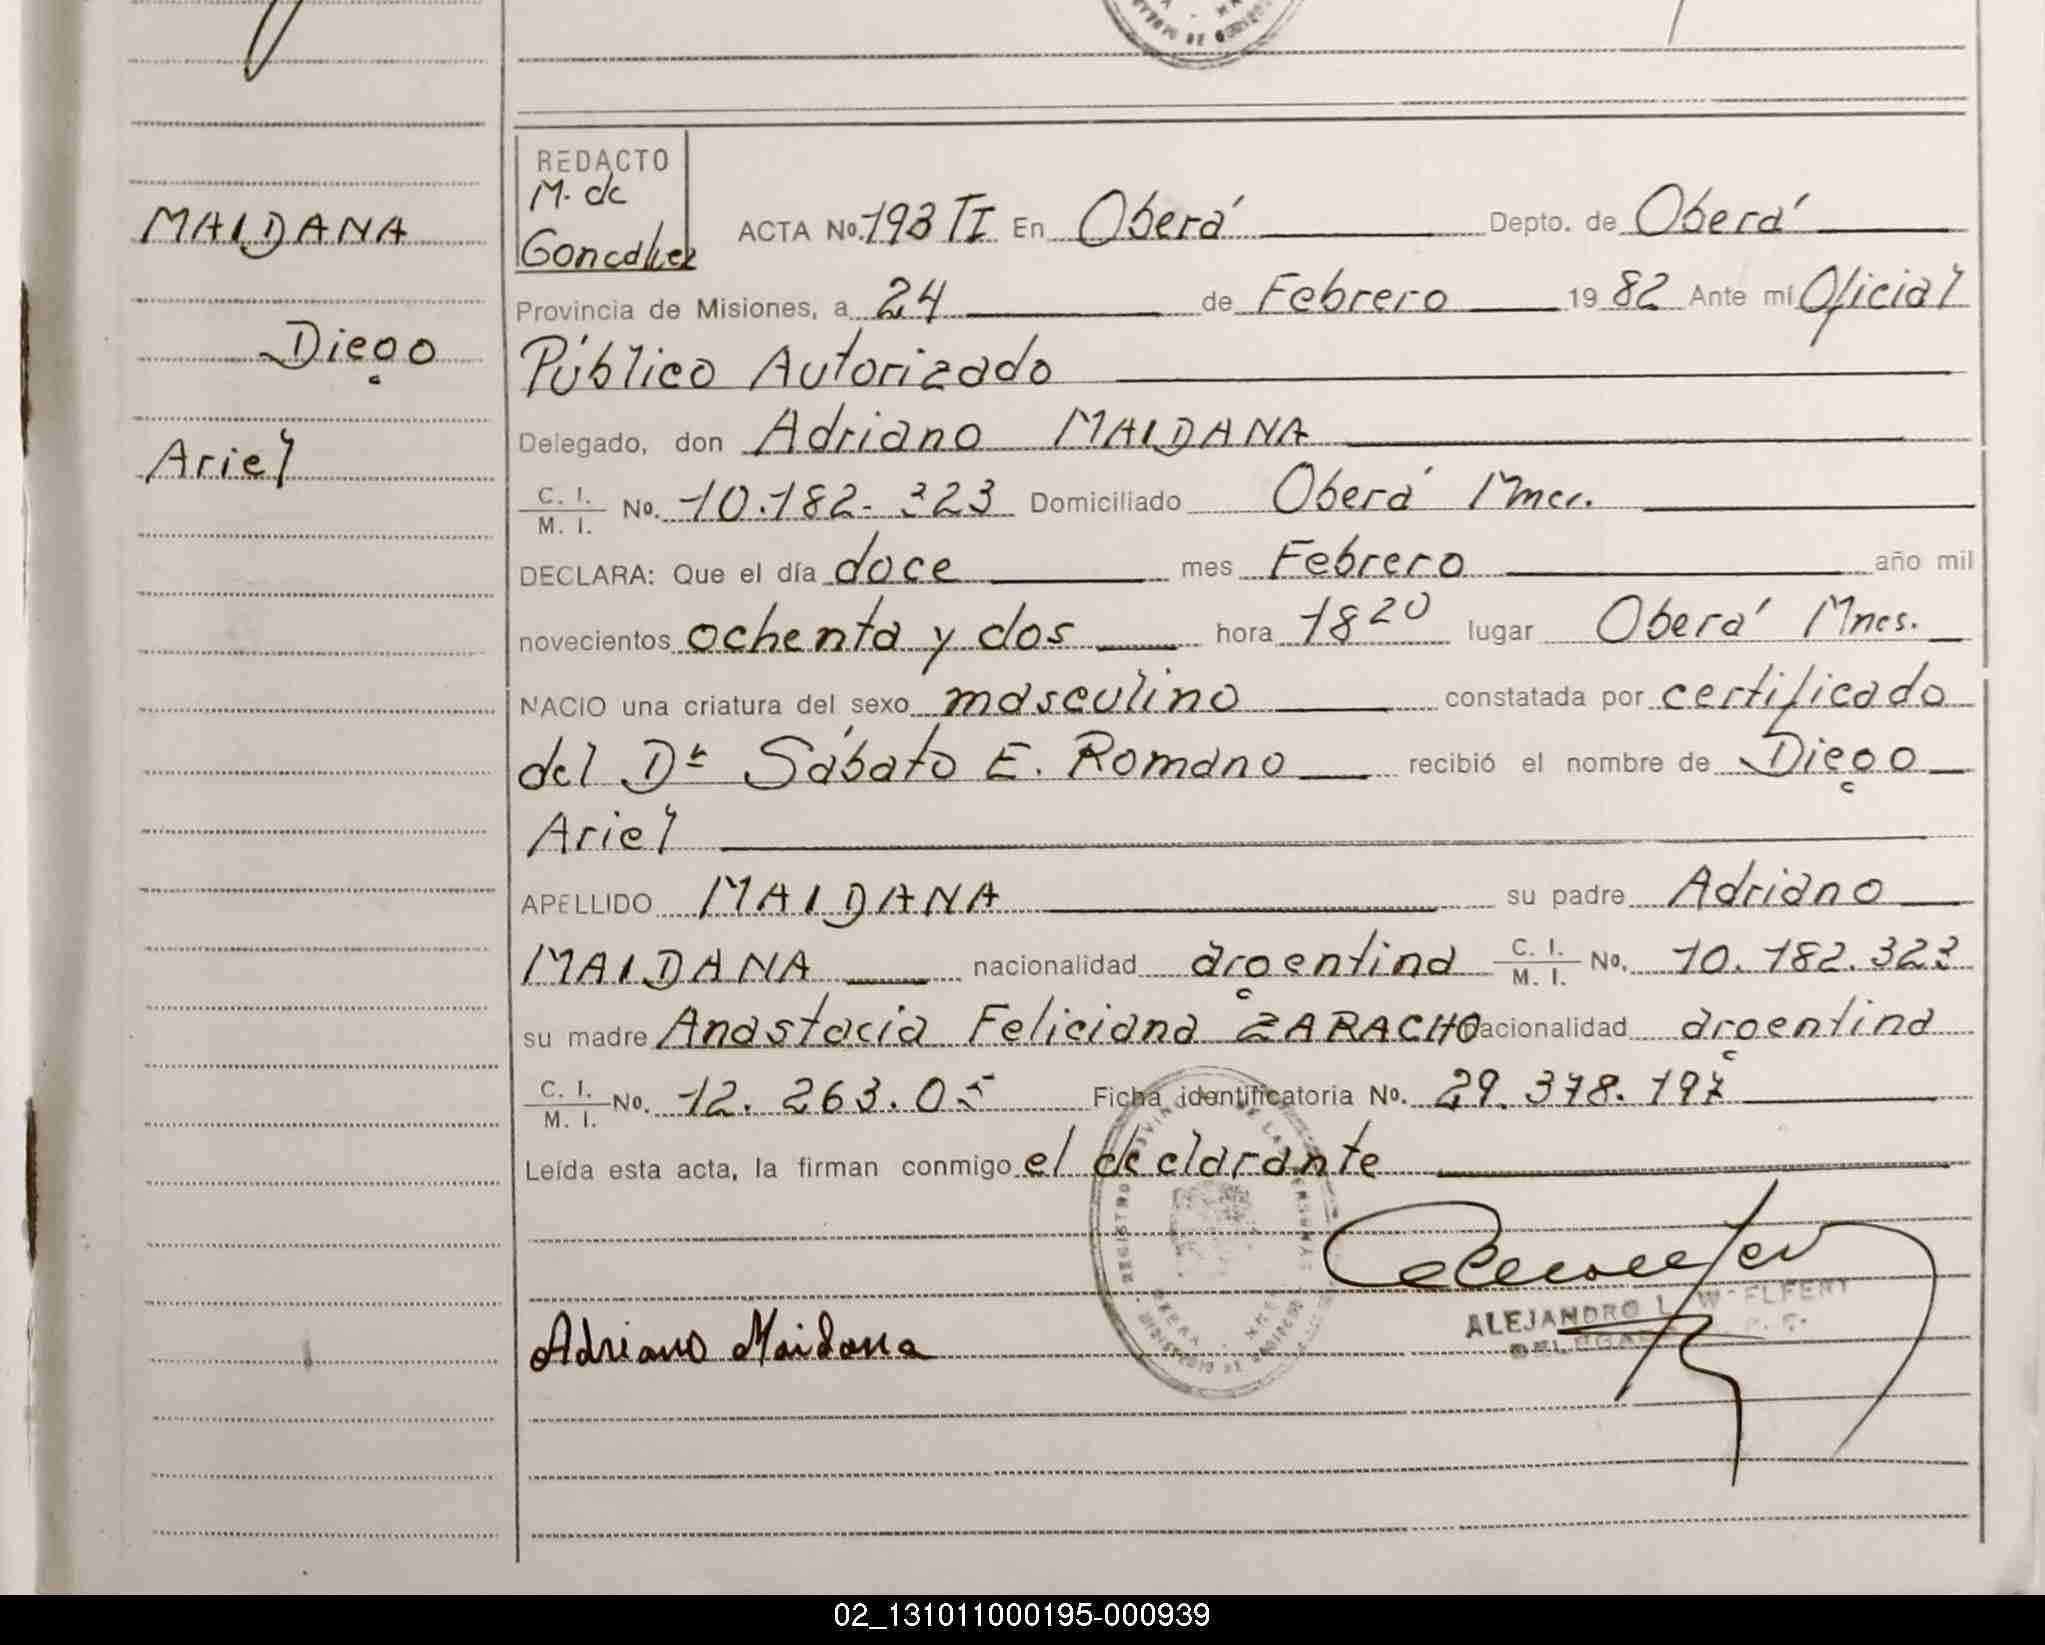 REDACTO
M. de
Gonzalez
MAIDANA
Diego
Ariel
ACTA No. 193 TI En Oberá Depto. de Oberá
Provincia de Misiones, a 24 de Febrero 19 82 Ante mí Oficial
Público Autorizado
Delegado, don Adriano MAIDANA
C. I. / M. I. No. 10.182.323 Domiciliado Oberá Mnes.
DECLARA: Que el día doce mes Febrero año mil
novecientos ochenta y dos hora 18 20 lugar Oberá Mnes.
NACIO una criatura del sexo masculino constatada por certificado
del Dr Sábato E. Romano recibió el nombre de Diego
Ariel
APELLIDO MAIDANA su padre Adriano
MAIDANA nacionalidad argentina C. I. / M. I. No. 10.182.323
su madre Anastacia Feliciana ZARACHO nacionalidad argentina
C. I. / M. I. No. 12.263.05 Ficha identificatoria No. 29.378.197
Leída esta acta, la firman conmigo el declarante
Adriano Maidana
ALEJANDRO L.
02_131011000195-000939